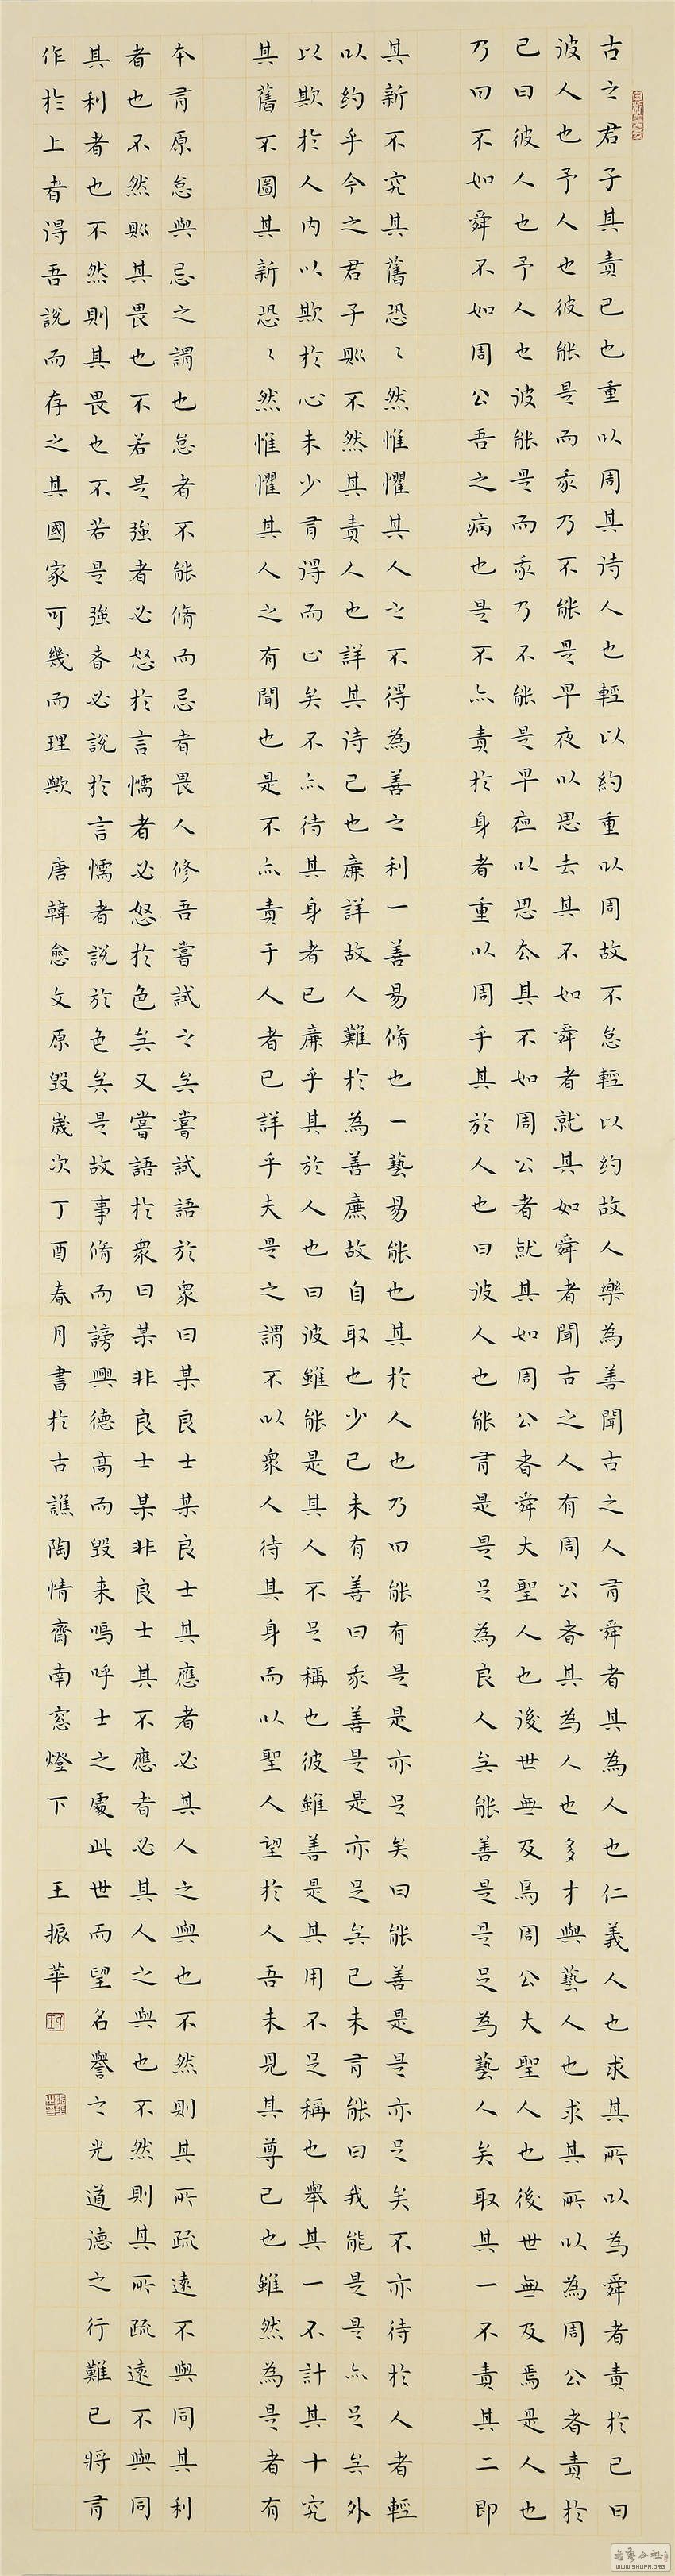 古之君子其責己也重以周其待人也輕以約重以周故不怠輕以約故人樂為善聞古之人有舜者其為人也仁義人也求其所以為舜者責於己曰
彼人也予人也彼能是而我乃不能是早夜以思去其不如舜者就其如舜者聞古之人有周公者其為人也多才與藝人也求其所以為周公者責於
己曰彼人也予人也彼能是而我乃不能是早夜以思去其不如周公者就其如周公者舜大聖人也後世無及焉周公大聖人也後世無及焉是人也
乃曰不如舜不如周公吾之病也是不亦責於身者重以周乎其於人也曰彼人也能有是是足為良人矣能善是是足為藝人矣取其一不責其二即
其新不究其舊恐〻然惟懼其人之不得為善之利一善易脩也一藝易能也其於人也乃曰能有是是亦足矣曰能善是是亦足矣不亦待於人者輕
以約乎今之君子則不然其責人也詳其待己也廉詳故人難於為善廉故自取也少己未有善曰我善是是亦足矣己未有能曰我能是是亦足矣外
以欺於人內以欺於心未少有得而止矣不亦待其身者已廉乎其於人也曰彼雖能是其人不足稱也彼雖善是其用不足稱也舉其一不計其十究
其舊不圖其新恐〻然惟懼其人之有聞也是不亦責于人者已詳乎夫是之謂不以眾人待其身而以聖人望於人吾未見其尊己也雖然為是者有
本有原怠與忌之謂也怠者不能脩而忌者畏人修吾嘗試之矣嘗試語於眾曰某良士某良士其應者必其人之與也不然則其所疏遠不與同其利
者也不然則其畏也不若是強者必怒於言懦者必怒於色矣又嘗語於眾曰某非良士某非良士其不應者必其人之與也不然則其所疏遠不與同
其利者也不然則其畏也不若是強者必說於言懦者說於色矣是故事脩而謗興德高而毀来嗚呼士之處此世而望名譽之光道德之行難已將有
作於上者得吾說而存之其國家可幾而理歟 唐韓愈文原毀歲次丁酉春月書於古譙陶情齋南窓燈下 王振華
WWW.SHUFR.ORG